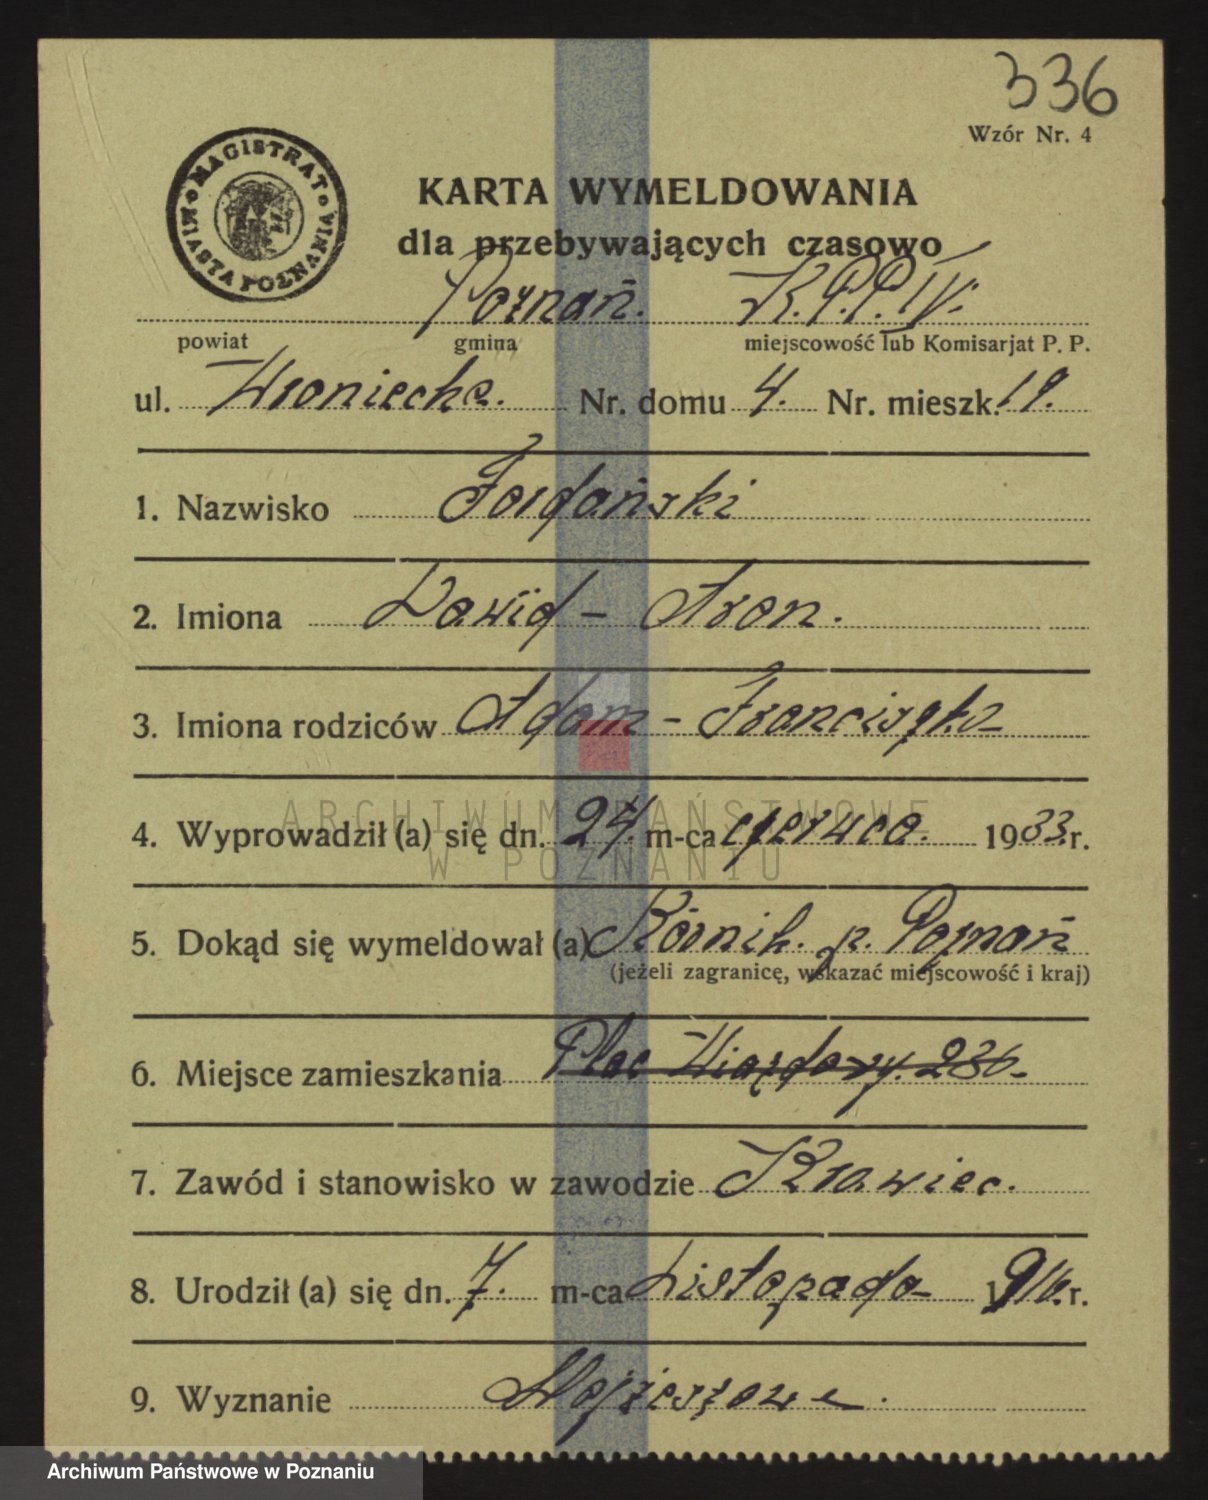 336
Wzór Nr. 4
MAGISTRAT
MIASTA POZNANIA
KARTA WYMELDOWANIA
dla przebywających czasowo
Poznań. K.P.P. IV.
powiat gmina miejscowość lub Komisarjat P. P.
ul. Wroniecka. Nr. domu 4. Nr. mieszk. 19.
1. Nazwisko Jordański
2. Imiona Dawid - Aron.
3. Imiona rodziców Adam - Franciszka
ARCHIWUM PAŃSTWOWE
4. Wyprowadził (a) się dn. 24. m-ca czerwca. 1933.r.
W POZNANIU
5. Dokąd się wymeldował (a) Kórnik. p. Poznań
(jeżeli zagranicę, wskazać miejscowość i kraj)
6. Miejsce zamieszkania Plac 236.
7. Zawód i stanowisko w zawodzie Krawiec.
8. Urodził (a) się dn. 7. m-ca Listopada 1916.r.
9. Wyznanie Mojżeszowe.
Archiwum Państwowe w Poznaniu